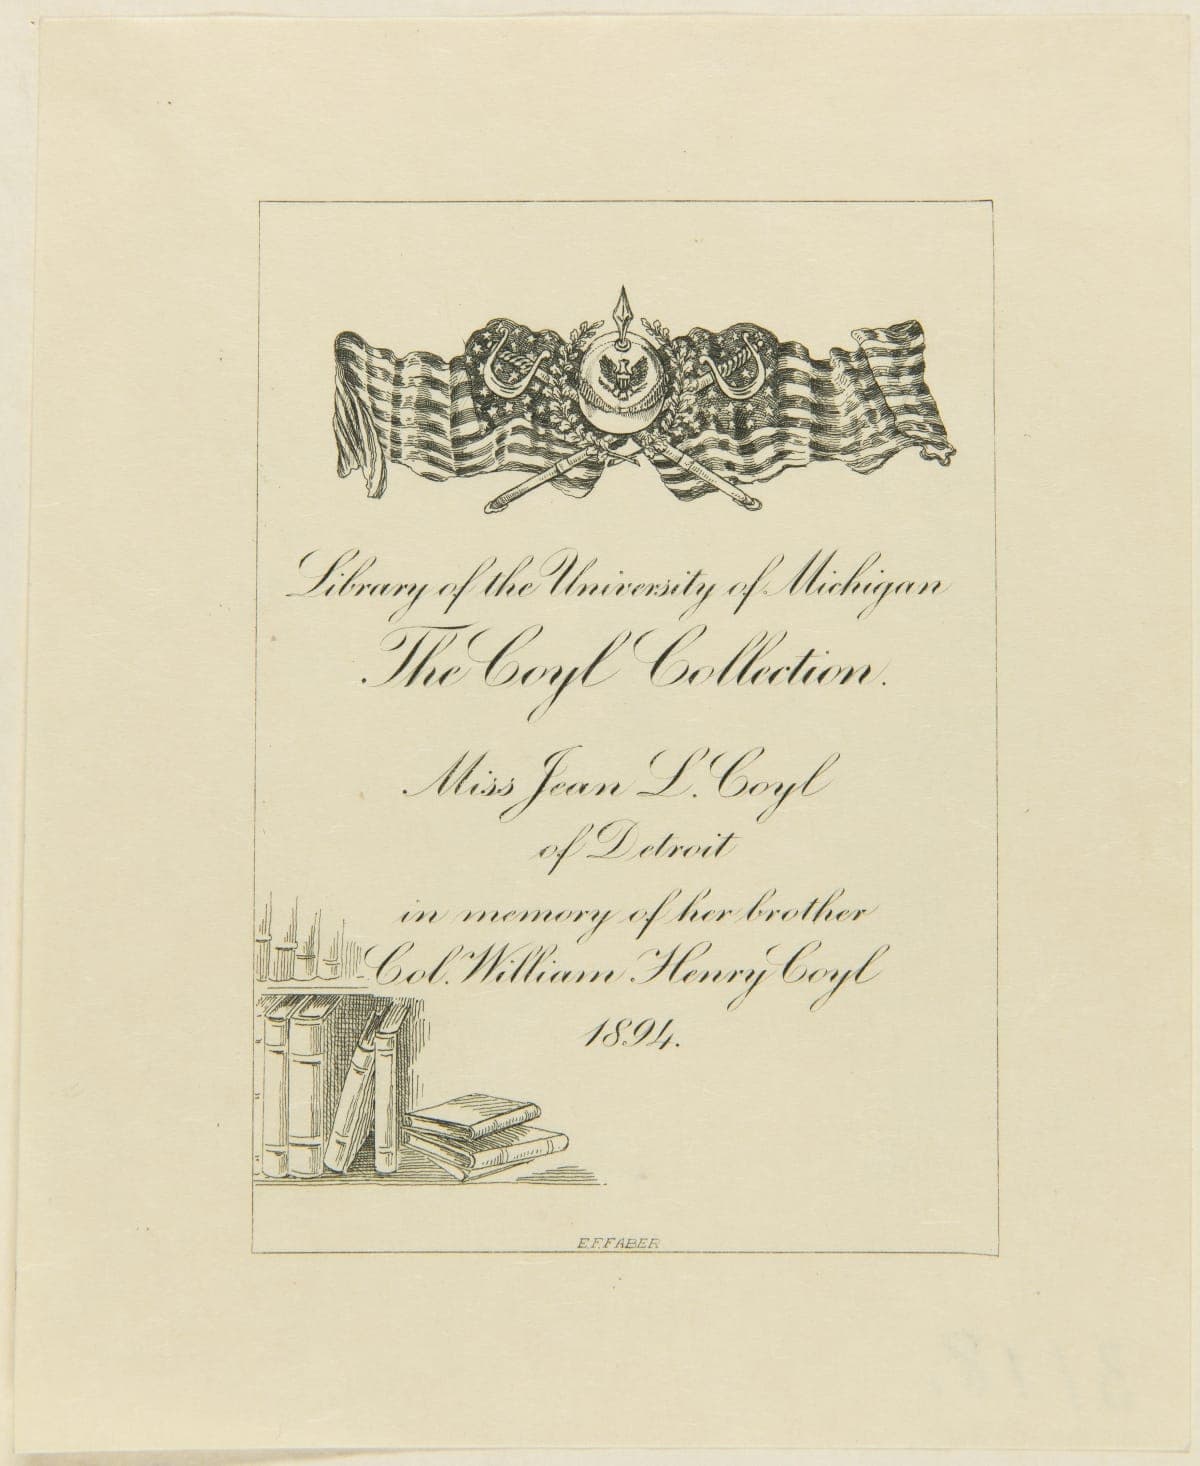 Library of the University of Michigan
The Coyl Collection.
Miss Jean L. Coyl
of Detroit
in memory of her brother
Col. William Henry Coyl
1894.
E.F.FABER